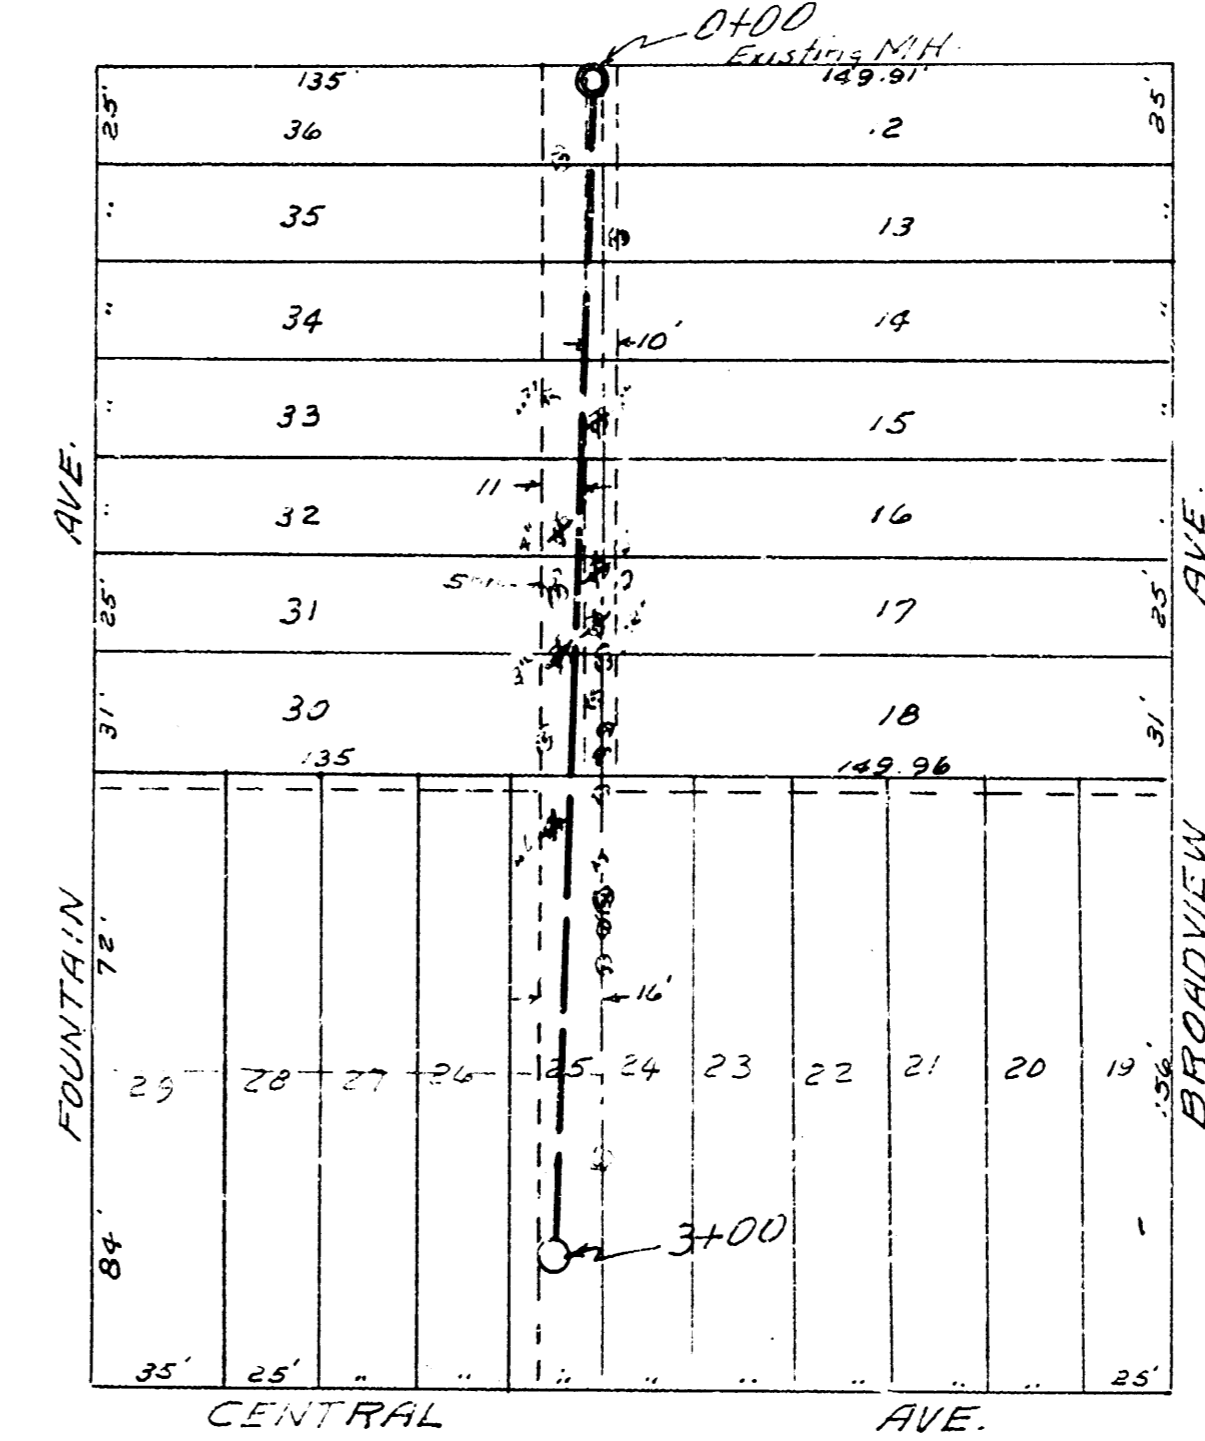 0+00
Existing M.H.
135'
149.91'
25'
36
.2
25'
"
35
13
"
"
34
14
"
10'
"
33
15
"
AVE.
11
"
32
16
AVE.
25'
31
17
25'
31'
30
18
31'
135
149.96
FOUNTAIN
72'
BROADVIEW
16'
29
28
27
26
25
24
23
22
21
20
19
156'
84'
3+00
35'
25'
"
"
"
"
"
"
"
"
25'
CENTRAL AVE.